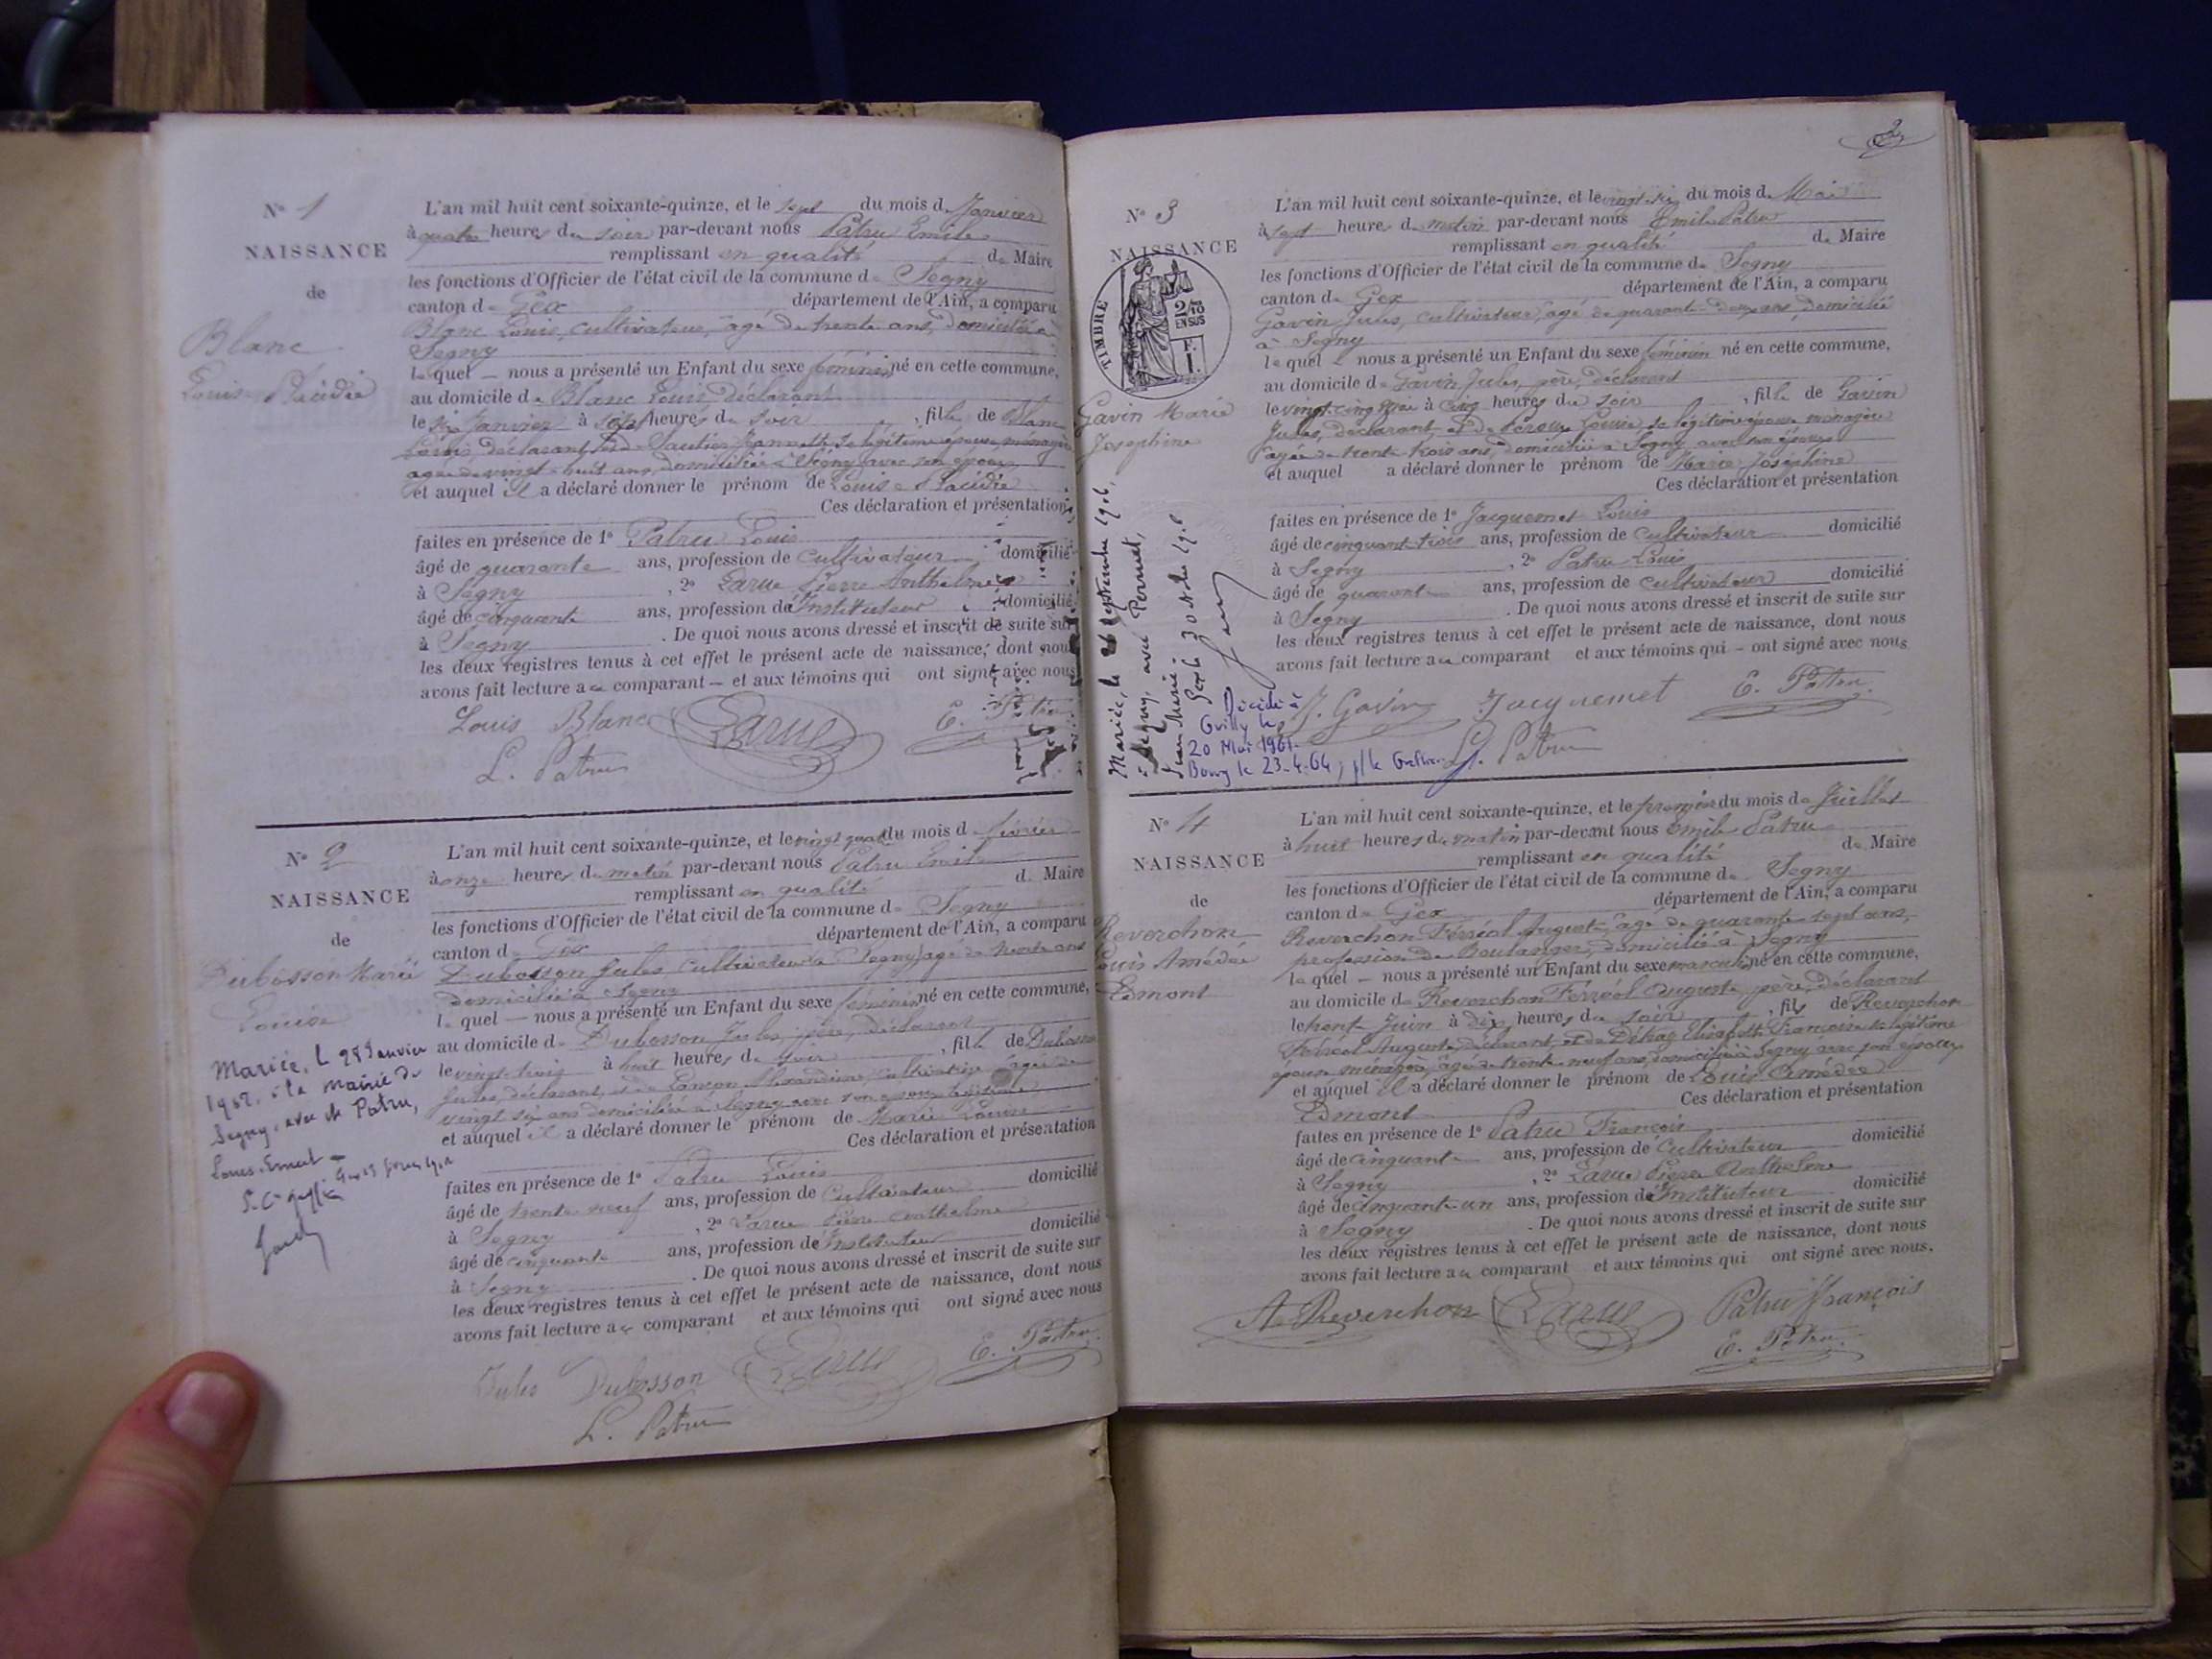 N° 1
NAISSANCE
de
Blanc
Louise Claudie
L'an mil huit cent soixante-quinze, et le sept du mois d Janvier
à quatre heures du soir par-devant nous Patru Emile
remplissant en qualité de Maire
les fonctions d'Officier de l'état civil de la commune de Segny
canton de Gex département de l'Ain, a comparu
Blanc Louis, cultivateur, âgé de trente ans, domicilié à
Segny
lequel — nous a présenté un Enfant du sexe féminin né en cette commune,
au domicile de Blanc Louis, déclarant
le six Janvier à heures du soir , fille de Blanc
Louis, déclarant, et de Sautier Jeannette, sa légitime épouse, ménagère
agée de vingt-huit ans, domiciliée à Segny avec son époux,
et auquel il a déclaré donner le prénom de Louise Claudie
Ces déclaration et présentation
faites en présence de 1° Patru Louis
âgé de quarante ans, profession de cultivateur domicilié
à Segny , 2° Larue Pierre Anthelme
âgé de cinquante ans, profession d'Instituteur domicilié
à Segny . De quoi nous avons dressé et inscrit de suite sur
les deux registres tenus à cet effet le présent acte de naissance, dont nous
avons fait lecture au comparant — et aux témoins qui ont signé avec nous
Louis Blanc Larue E. Patru
L. Patru
N° 2
NAISSANCE
de
Dubosson Marie
Louise
Mariée, le 28 Janvier
à la mairie de
Segny, avec M Patru,
Louis Ernest
L'an mil huit cent soixante-quinze, et le vingt quatre du mois d février
à onze heures du matin par-devant nous Patru Emile
remplissant en qualité de Maire
les fonctions d'Officier de l'état civil de la commune de Segny
canton de Gex département de l'Ain, a comparu
Dubosson Jules cultivateur à Segny, âgé de trente ans
domicilié à Segny
lequel — nous a présenté un Enfant du sexe féminin né en cette commune,
au domicile de Dubosson Jules père, déclarant
le vingt-trois à huit heures du soir , fille de Dubosson
Jules, déclarant, et de Alexandrine, cultivatrice âgée de
vingt six ans domiciliée à Segny avec son époux légitime
et auquel il a déclaré donner le prénom de Marie Louise
Ces déclaration et présentation
faites en présence de 1° Patru Louis
âgé de trente neuf ans, profession de cultivateur domicilié
à Segny , 2° Larue Pierre Anthelme
âgé de cinquante ans, profession d'Instituteur domicilié
à Segny . De quoi nous avons dressé et inscrit de suite sur
les deux registres tenus à cet effet le présent acte de naissance, dont nous
avons fait lecture au comparant et aux témoins qui ont signé avec nous
Jules Dubosson Larue E. Patru
L. Patru
2
N° 3
NAISSANCE
TIMBRE
2/10
EN SUS
F.
1.
Gavin Marie
Joséphine
Mariée, le 26 septembre 1906,
à Segny, avec Perruet,
Jean Marie
Décédée à
le
20 Mai 1961
Bourg le 23-4-64, p/ le Greffier
L'an mil huit cent soixante-quinze, et le vingt-six du mois de Mai
à sept heures du matin par-devant nous Emile Patru
remplissant en qualité de Maire
les fonctions d'Officier de l'état civil de la commune de Segny
canton de Gex département de l'Ain, a comparu
Gavin Jules, cultivateur, âgé de quarante-deux ans, domicilié
à Segny
lequel nous a présenté un Enfant du sexe féminin né en cette commune,
au domicile de Gavin Jules, père, déclarant
le vingt-cinq Mai à cinq heures du soir , fille de Gavin
Jules, déclarant, et de Louise, sa légitime épouse, ménagère
âgée de trente trois ans, domiciliée à Segny avec son époux
et auquel a déclaré donner le prénom de Marie Joséphine
Ces déclaration et présentation
faites en présence de 1° Jacquemet Louis
âgé de cinquante-trois ans, profession de cultivateur domicilié
à Segny , 2° Patru Louis
âgé de quarante ans, profession de cultivateur domicilié
à Segny . De quoi nous avons dressé et inscrit de suite sur
les deux registres tenus à cet effet le présent acte de naissance, dont nous
avons fait lecture au comparant et aux témoins qui - ont signé avec nous
J. Gavin Jacquemet E. Patru
L. Patru
N° 4
NAISSANCE
de
Reverchon
Louis Amédée
Edmont
L'an mil huit cent soixante-quinze, et le premier du mois de Juillet
à huit heures du matin par-devant nous Emile Patru
remplissant en qualité de Maire
les fonctions d'Officier de l'état civil de la commune de Segny
canton de Gex département de l'Ain, a comparu
Reverchon Férréol Auguste, âgé de quarante sept ans,
profession de Boulanger, domicilié à Segny
lequel — nous a présenté un Enfant du sexe masculin né en cette commune,
au domicile de Reverchon Férréol Auguste, père, déclarant
le trente Juin à dix heures du soir , fils de Reverchon
Férréol Auguste, déclarant et de Elisabeth Françoise sa légitime
épouse, ménagère, âgée de trente-neuf ans, domiciliée à Segny avec son époux
et auquel il a déclaré donner le prénom de Louis Amédée
Edmont Ces déclaration et présentation
faites en présence de 1° Patru François
âgé de cinquante ans, profession de Cultivateur domicilié
à Segny , 2° Larue Pierre Anthelme
âgé de cinquante-un ans, profession d'Instituteur domicilié
à Segny . De quoi nous avons dressé et inscrit de suite sur
les deux registres tenus à cet effet le présent acte de naissance, dont nous
avons fait lecture au comparant et aux témoins qui ont signé avec nous.
A Reverchon Larue Patru François
E. Patru